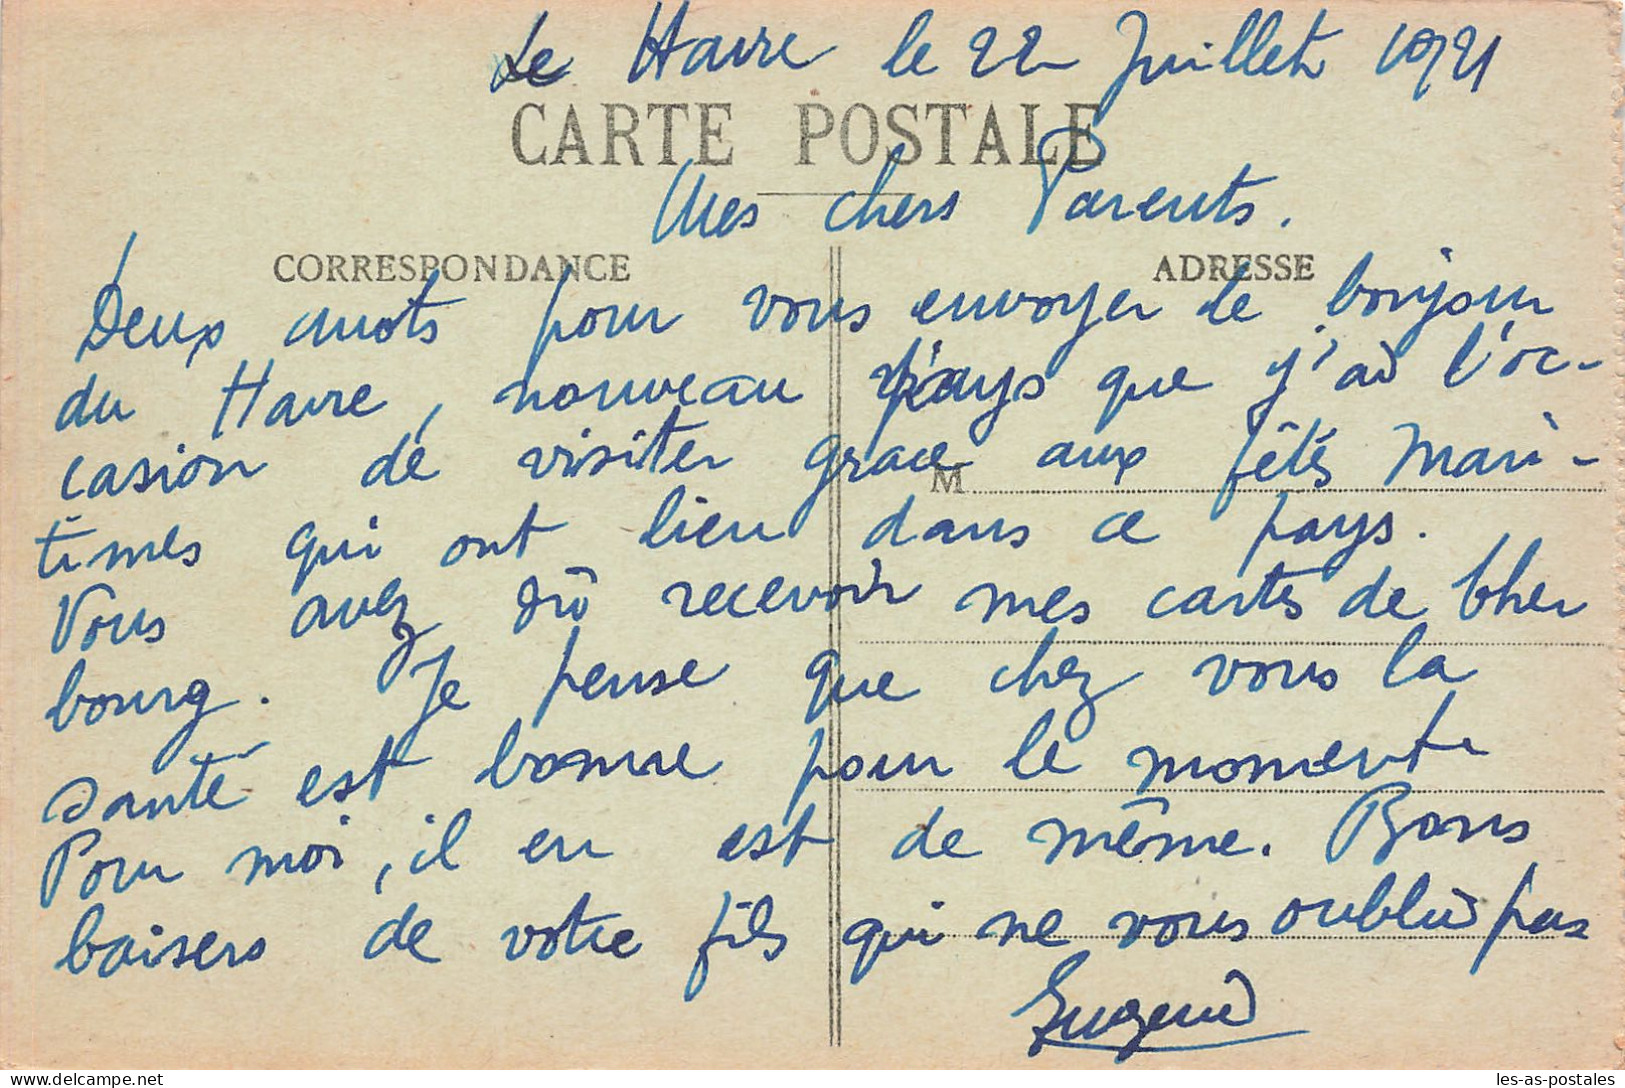 Le Havre le 22 Juillet 1921
CARTE POSTALE
Mes chers Parents.
CORRESPONDANCE
ADRESSE
Deux mots pour vous envoyer le bonjour
du Havre, nouveau pays que j'ai l'oc-
casion de visiter grace aux fêtes Mari-
M
times qui ont lieu dans ce pays.
Vous avez dû recevoir mes cartes de Cher
bourg. Je pense que chez vous la
santé est bonne pour le moment
Pour moi, il en est de même. Bons
baisers de votre fils qui ne vous oublie pas
Eugène
les-as-postales